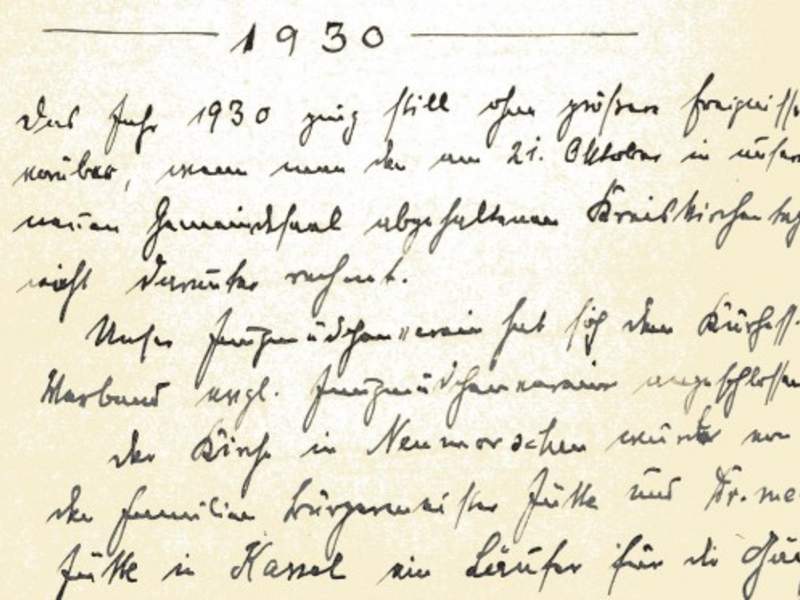 1930
Das Jahr 1930 ging still ohne größere Ereignisse
vorüber, wenn man den am 21. Oktober in unserem
neuen Gemeindesaal abgehaltenen Kreiskirchentag
nicht darunter rechnet.
Unser Jungmädchenverein hat sich dem Kurhess.
Verband evgl. Jungmädchenvereine angeschlossen
Der Kirche in Neumorschen wurde von
den Familien Bürgermeister Jütte und Dr. me
Jütte in Kassel ein Läufer für die